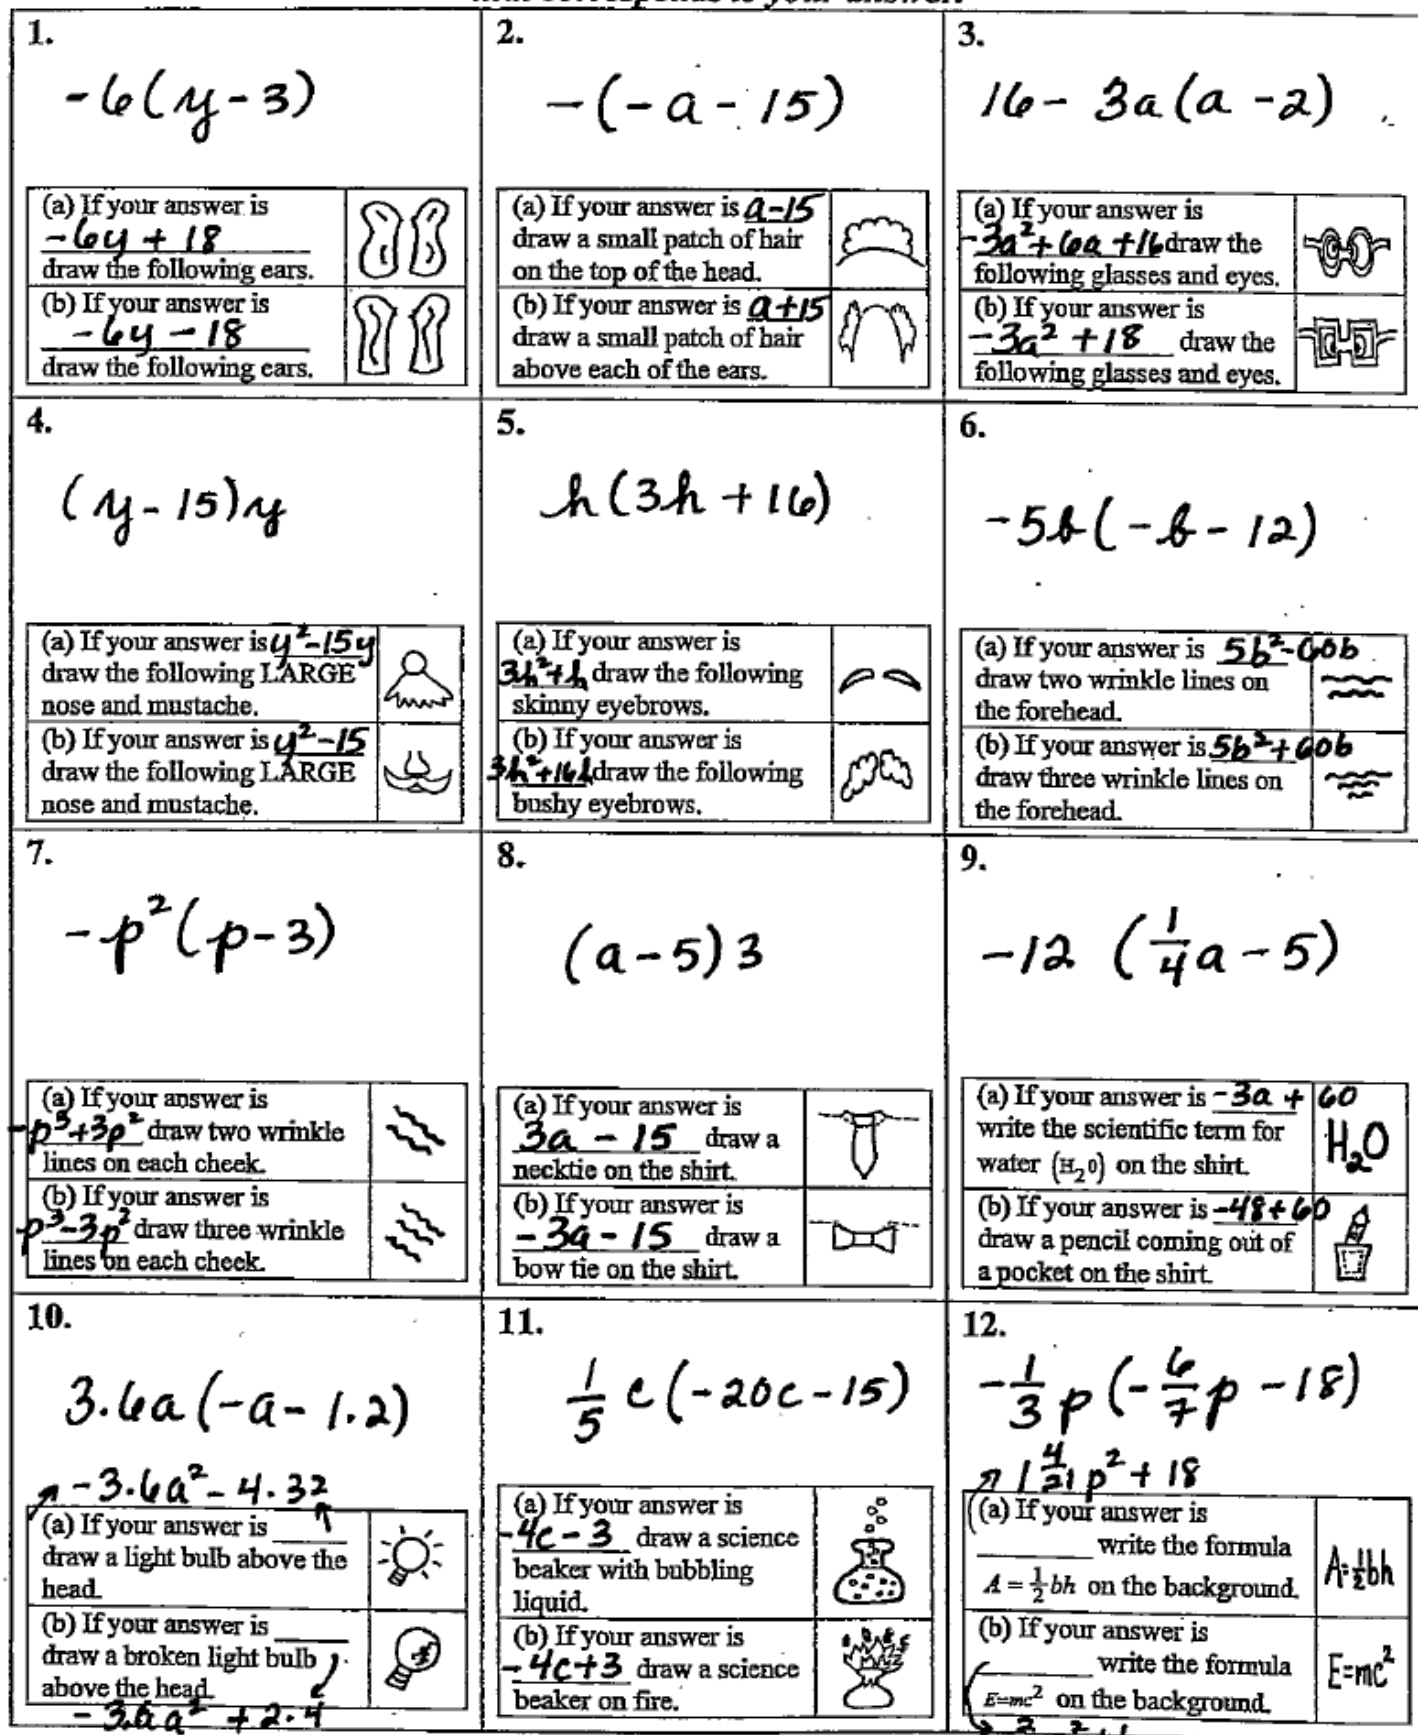 that corresponds to your answer.
1.
-6(y-3)
(a) If your answer is
-6y + 18
draw the following ears.
(b) If your answer is
-6y - 18
draw the following ears.
2.
-(-a-15)
(a) If your answer is a-15
draw a small patch of hair
on the top of the head.
(b) If your answer is a+15
draw a small patch of hair
above each of the ears.
3.
16- 3a(a-2)
(a) If your answer is
-3a²+6a+16 draw the
following glasses and eyes.
(b) If your answer is
-3a² +18 draw the
following glasses and eyes.
4.
(y-15)y
(a) If your answer is y²-15y
draw the following LARGE
nose and mustache.
(b) If your answer is y²-15
draw the following LARGE
nose and mustache.
5.
h(3h+16)
(a) If your answer is
3h²+h draw the following
skinny eyebrows.
(b) If your answer is
3h²+16h draw the following
bushy eyebrows.
6.
-5b(-b-12)
(a) If your answer is 5b²-60b
draw two wrinkle lines on
the forehead.
(b) If your answer is 5b²+60b
draw three wrinkle lines on
the forehead.
7.
-p²(p-3)
(a) If your answer is
-p³+3p² draw two wrinkle
lines on each cheek.
(b) If your answer is
-p³-3p² draw three wrinkle
lines on each cheek.
8.
(a-5)3
(a) If your answer is
3a - 15 draw a
necktie on the shirt.
(b) If your answer is
-3a - 15 draw a
bow tie on the shirt.
9.
-12 (1/4a-5)
(a) If your answer is -3a + 60
write the scientific term for
water (H₂0) on the shirt.
H₂O
(b) If your answer is -48+60
draw a pencil coming out of
a pocket on the shirt.
10.
3.6a(-a-1.2)
-3.6a²-4.32
(a) If your answer is
draw a light bulb above the
head.
(b) If your answer is
draw a broken light bulb
above the head.
+2.4
11.
1/5 c(-20c-15)
(a) If your answer is
-4c-3 draw a science
beaker with bubbling
liquid.
(b) If your answer is
-4c+3 draw a science
beaker on fire.
12.
-1/3 p(-6/7 p-18)
1 4/21 p²+18
(a) If your answer is
write the formula
A = ½bh on the background.
A=½bh
(b) If your answer is
write the formula
E=mc² on the background.
E=mc²